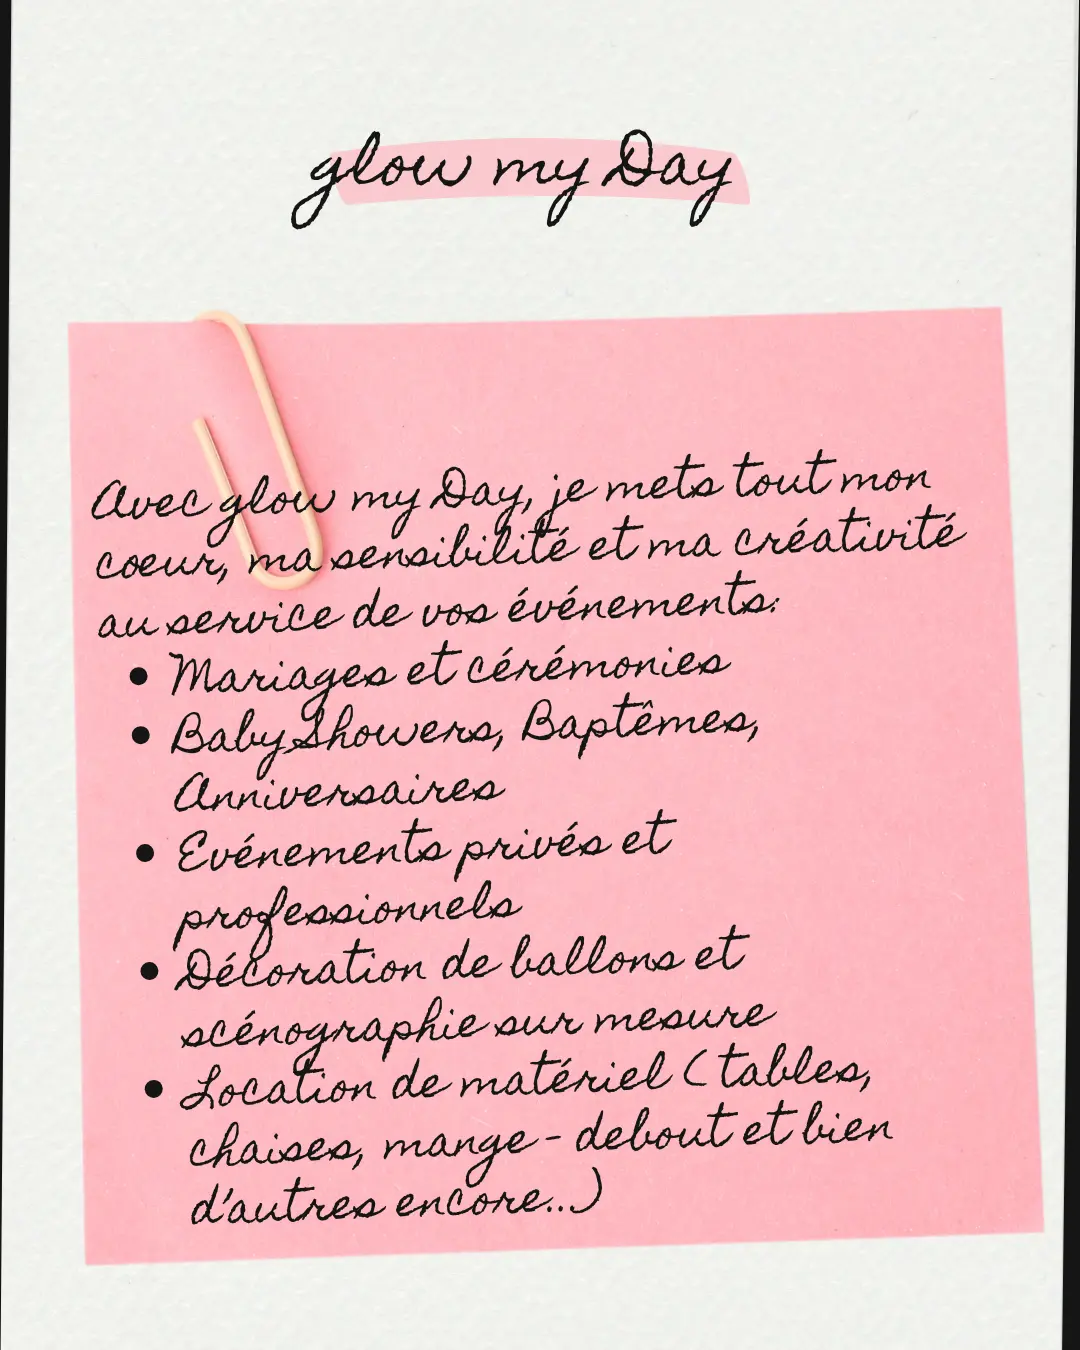 glow my Day
Avec glow my Day, je mets tout mon
coeur, ma sensibilité et ma créativité
au service de vos événements:
• Mariages et cérémonies
• Baby Showers, Baptêmes,
Anniversaires
• Evénements privés et
professionnels
• Décoration de ballons et
scénographie sur mesure
• Location de matériel ( tables,
chaises, mange - debout et bien
d'autres encore..)